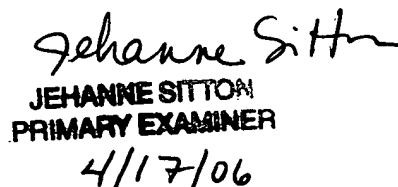 Jehanne Sitton
JEHANNE SITTON
PRIMARY EXAMINER
4/17/06